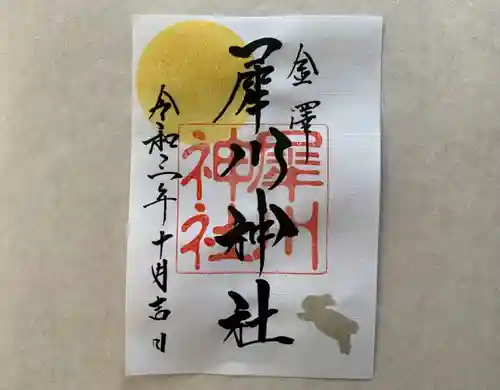 金澤
犀川神社
犀川
神社
令和三年十月吉日